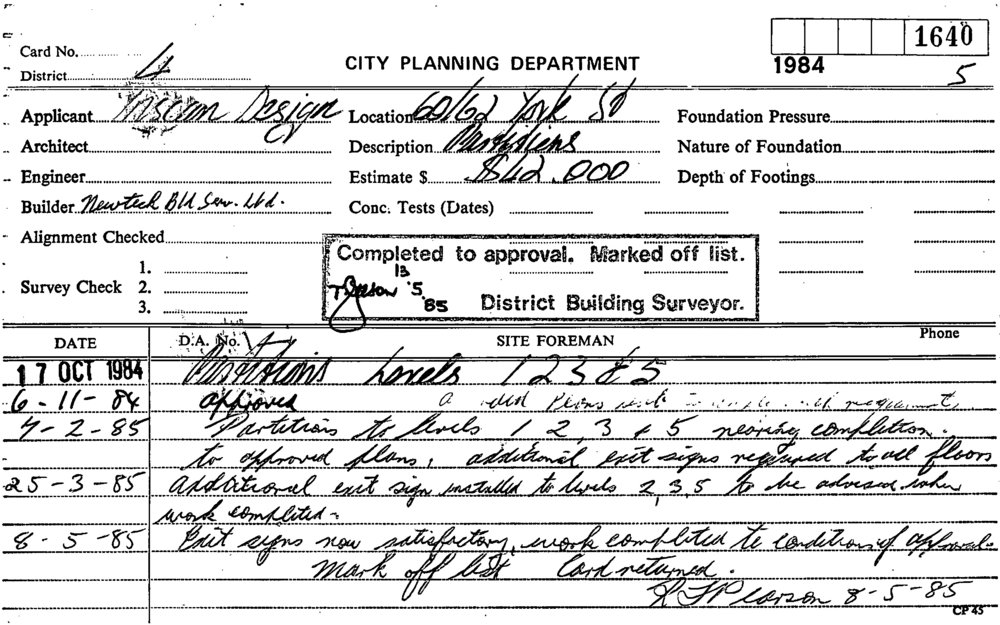 Card No.
1640
District 4
CITY PLANNING DEPARTMENT
1984
5
Applicant Design
Location 60/62 York St
Foundation Pressure
Architect
Description Partitions
Nature of Foundation
Engineer
Estimate $ $42.000
Depth of Footings
Builder Newtech Bld Serv. Ltd.
Conc. Tests (Dates)
Alignment Checked
Completed to approval. Marked off list.
Survey Check
1.
2.
3.
13 '5 '85
District Building Surveyor.
DATE
D.A. No.
SITE FOREMAN
Phone
17 OCT 1984 Partitions Levels 1 2 3 & 5
6-11-84 approved
7-2-85 Partitions to levels 1, 2, 3 & 5 nearing completion.
to approved plans, additional exit signs required to all floors
25-3-85 Additional exit sign installed to levels 2, 3, 5 to be advised when
work completed-
8-5-85 Exit signs now satisfactory, work completed to conditions of approval.
Mark off list Card returned.
Pearson 8-5-85
CP 45